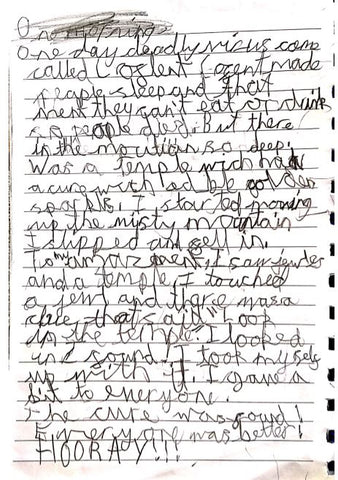 One day deadly virus come
called Cogent Cogent made
people sleep and that
ment they can't eat or drink
so people died. But there
in the moution so deep.
Was a temple wich had
a cure with ed ble golden
spark. I started moving
up the misty mountain
I slipped and fell in.
To my amazment, I saw jewles
and a temple. I touched
a jewl and there was a
clue that said "Look
in the temple". I looked
and found. I took myself
up with it. I gave a
bit to everyone.
The cure was found!
Everyone was better!
HOORAY!!!